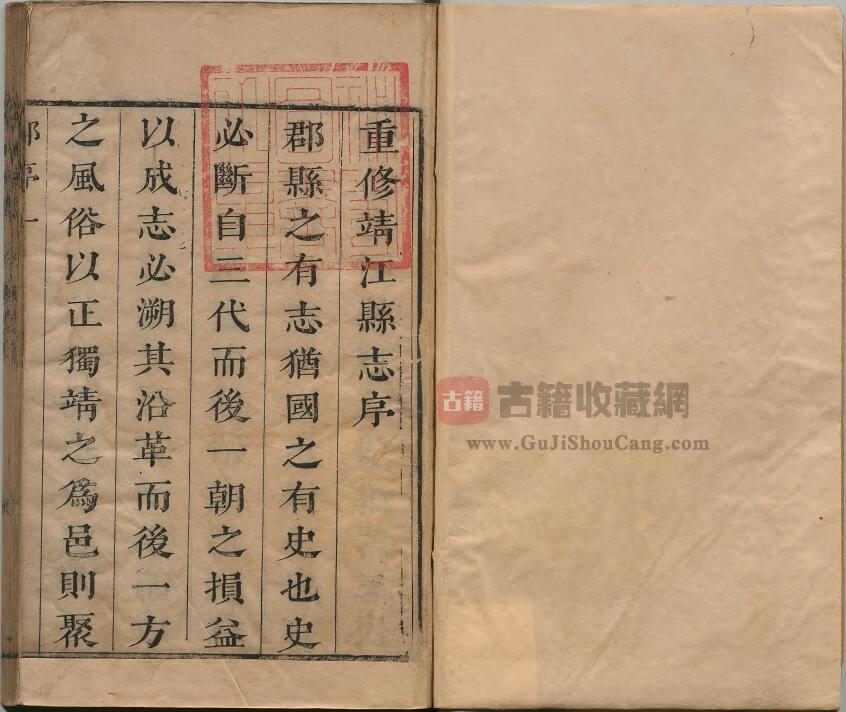 重修靖江縣志序
郡縣之有志猶國之有史也史
必斷自三代而後一朝之損益
以成志必溯其沿革而後一方
之風俗以正獨靖之為邑則聚
序一
古籍
古籍收藏網
www.GuJiShouCang.com